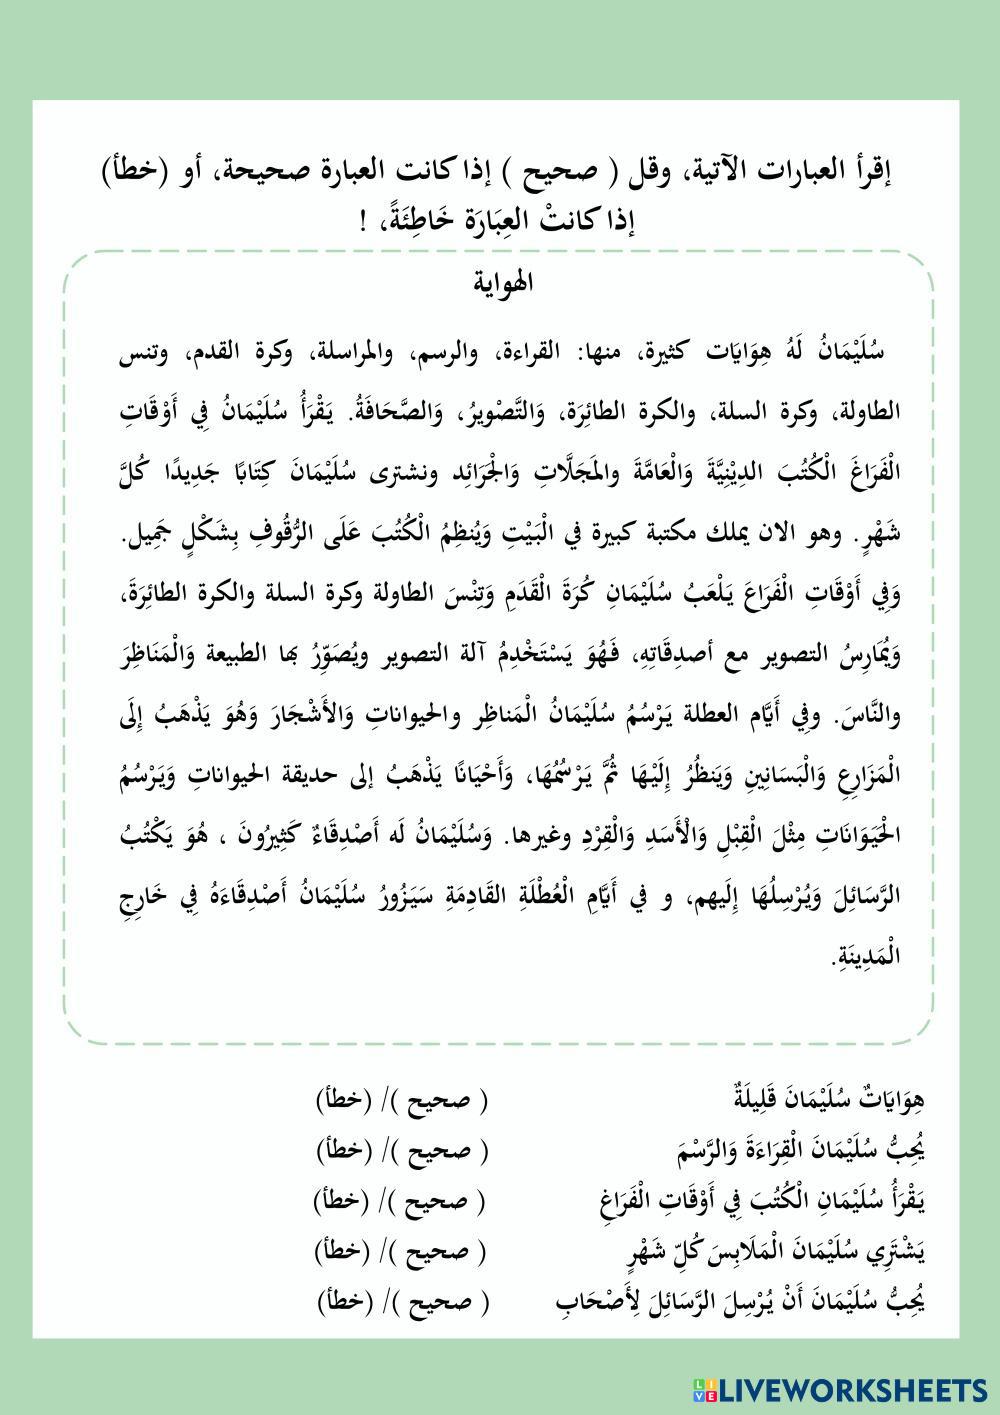 إقرأ العبارات الآتية، وقل ( صحيح ) إذا كانت العبارة صحيحة، أو (خطأ)
إذا كانتْ العِبَارَة خَاطِئَةً، !
الهواية
سُلَيْمَانُ لَهُ هِوَايَات كثيرة، منها: القراءة، والرسم، والمراسلة، وكرة القدم، وتنس
الطاولة، وكرة السلة، والكرة الطائِرَة، وَالتَّصْوِيرُ، وَالصَّحَافَةُ. يَقْرَأُ سُلَيْمَانُ فِي أَوْقَاتِ
الْفَرَاغَ الْكُتُبَ الدِيْنِيَّةَ وَالْعَامَّةَ والمَجَلَّاتِ وَالْجَرَائِد ونشترى سُلَيْمَانَ كِتَابًا جَدِيدًا كُلَّ
شَهْرٍ. وهو الان يملك مكتبة كبيرة في الْبَيْتِ وَيُنظِمُ الْكُتُبَ عَلَى الرُّقُوفِ بِشَكْلٍ جَمِيل.
وَفِي أَوْقَاتِ الْفَرَاغَ يَلْعَبُ سُلَيْمَانِ كُرَةَ الْقَدَمِ وَتِنْسَ الطاولة وكرة السلة والكرة الطائِرَةَ،
وَيُمَارِسُ التصوير مع أصدِقَاتِهِ، فَهُوَ يَسْتَخْدِمُ آلة التصوير ويُصَوِّرُ بها الطبيعة وَالْمَنَاظِرَ
والنَّاسَ. وفِي أَيَّام العطلة يَرْسُمُ سُلَيْمَانُ الْمَناظِر والحيواناتِ وَالأَشْجَارَ وَهُوَ يَذْهَبُ إِلَى
الْمَزَارِعِ وَالْبَسَانِينِ وَيَنظُرُ إِلَيْهَا ثُمَّ يَرْسُمُهَا، وَأَحْيَانًا يَذْهَبُ إلى حديقة الحيواناتِ وَيَرْسُمُ
الْحَيَوَانَاتِ مِثْلَ الْقِبْلِ وَالْأَسَدِ وَالْقِرْدِ وغيرها. وَسُلَيْمَانُ لَه أَصْدِقَاءٌ كَثِيرُونَ ، هُوَ يَكْتُبُ
الرَّسَائِلَ وَيُرْسِلُهَا إِلَيهم، و في أَيَّامِ الْعُطْلَةِ القَادِمَةِ سَيَزُورُ سُلَيْمَانُ أَصْدِقَاءَهُ فِي خَارِجِ
الْمَدِينَةِ.
هِوَايَاتٌ سُلَيْمَانَ قَلِيلَةٌ ( صحيح )/ (خطأ)
يُحِبُّ سُلَيْمَانَ الْقِرَاءَةَ وَالرَّسْمَ ( صحيح )/ (خطأ)
يَقْرَأُ سُلَيْمَانِ الْكُتُبَ فِي أَوْقَاتِ الْفَرَاغِ ( صحيح )/ (خطأ)
يَشْتَرِي سُلَيْمَانَ الْمَلَابِسَ كُلِّ شَهْرٍ ( صحيح )/ (خطأ)
يُحِبُّ سُلَيْمَانَ أَنْ يُرْسِلَ الرَّسَائِلَ لِأَصْحَابِ ( صحيح )/ (خطأ)
LIVE LIVEWORKSHEETS